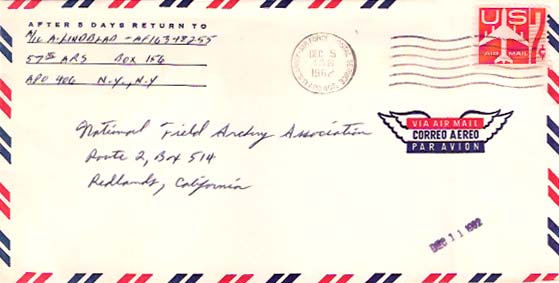 AFTER 5 DAYS RETURN TO
A/1C A. LINDBLAD - AF16348255
57th ARS BOX 156
APO 406 N.Y., N.Y
DEC 5
1962
US
AIR MAIL
VIA AIR MAIL
CORREO AEREO
PAR AVION
National Field Archery Association
Route 2, Box 514
Redlands, California
DEC 11 1962